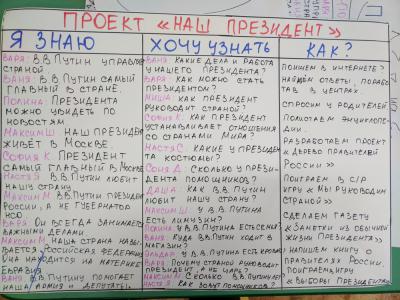 ПРОЕКТ «НАШ ПРЕЗИДЕНТ»
Я ЗНАЮ
ВАРЯ: В.В.ПУТИН УПРАВЛЯЕТ
СТРАНОЙ
ВАНЯ: В.В.ПУТИН САМЫЙ
ГЛАВНЫЙ В СТРАНЕ.
ПОЛИНА: ПРЕЗИДЕНТА
МОЖНО УВИДЕТЬ ПО
НОВОСТЯМ
МАКСИМ Ш. НАШ ПРЕЗИДЕНТ
ЖИВЁТ В МОСКВЕ.
СОФИЯ К. ПРЕЗИДЕНТ
САМЫЙ ГЛАВНЫЙ В МОСКВЕ
НАСТЯ С. В.В.ПУТИН ЛЮБИТ
НАШУ СТРАНУ
МАКСИМ М. В.В.ПУТИН ПРЕЗИДЕНТ
РОССИИ, А НЕ ГУБЕРНАТОР
НСО
ВАРЯ: ОН ВСЕГДА ЗАНИМАЕТСЯ
ВАЖНЫМИ ДЕЛАМИ.
МАКСИМ М. НАША СТРАНА НАЗЫ
ВАЕТСЯ РОССИЙСКАЯ ФЕДЕРАЦИЯ
ОНА НАХОДИТСЯ НА МАТЕРИКЕ
ЕВРАЗИЯ
ВАНЯ: В.В.ПУТИН ПОМОГАЕТ
НАША АРМИЯ И ДЕПУТАТЫ.
ХОЧУ УЗНАТЬ
ВАНЯ: КАКИЕ ДЕЛА И РАБОТА
У НАШЕГО ПРЕЗИДЕНТА?
ВАРЯ: КАК МОЖНО СТАТЬ
ПРЕЗИДЕНТОМ?
МИША: КАК ПРЕЗИДЕНТ
РУКОВОДИТ СТРАНОЙ?
СОФИЯ К. КАК ПРЕЗИДЕНТ
УСТАНАВЛИВАЕТ ОТНОШЕНИЯ
СО СТРАНАМИ МИРА?
НАСТЯ С. КАКИЕ У ПРЕЗИДЕН
ТА КОСТЮМЫ?
СОНЯ Д. СКОЛЬКО У ПРЕЗИ
ДЕНТА ПОМОЩНИКОВ?
ДАША: КАК В.В. ПУТИН
ЛЮБИТ НАШУ СТРАНУ?
МАКСИМ Ш. У В.В. ПУТИНА
ЕСТЬ ЛИМУЗИН?
ПОЛИНА: У В.В.ПУТИНА ЕСТЬ СЕМЬЯ?
ВАНЯ: КУДА В.В.ПУТИН ХОДИТ В
МАГАЗИН?
У В.В.ПУТИНА ЕСТЬ
ВАРЯ: ПОЧЕМУ СТРАНОЙ РУКОВОДИТ
ПРЕЗИДЕНТ, А НЕ ЦАРЬ?
МАКСИМ М. СКОЛЬКО В.В.ПУТИНУ ЛЕТ
НАСТЯ: КАК ЗОВУТ ПОМОЩНИКОВ?
КАК?
ПОИЩЕМ В ИНТЕРНЕТЕ?
НАЙДЁМ ОТВЕТЫ, ПОРАБО
ТАВ В ЦЕНТРАХ.
СПРОСИМ У РОДИТЕЛЕЙ
ПОЛИСТАЕМ ЭНЦИКЛОПЕ-
ДИИ.
РАЗРАБОТАЕМ ПРОЕКТ
«ДЕРЕВО ПРАВИТЕЛЕЙ
РОССИИ»
ПОИГРАЕМ В С/Р
ИГРУ «МЫ РУКОВОДИМ
СТРАНОЙ»
СДЕЛАЕМ ГАЗЕТУ
«ЗАМЕТКИ ИЗ ОБЫЧНОЙ
ЖИЗНИ ПРЕЗИДЕНТА»
НАПИШЕМ КНИГУ О
ПРАВИТЕЛЯХ РОССИИ.
ПОИГРАЕМ В ИГРУ
«ВЫБОРЫ ПРЕЗИДЕНТА»